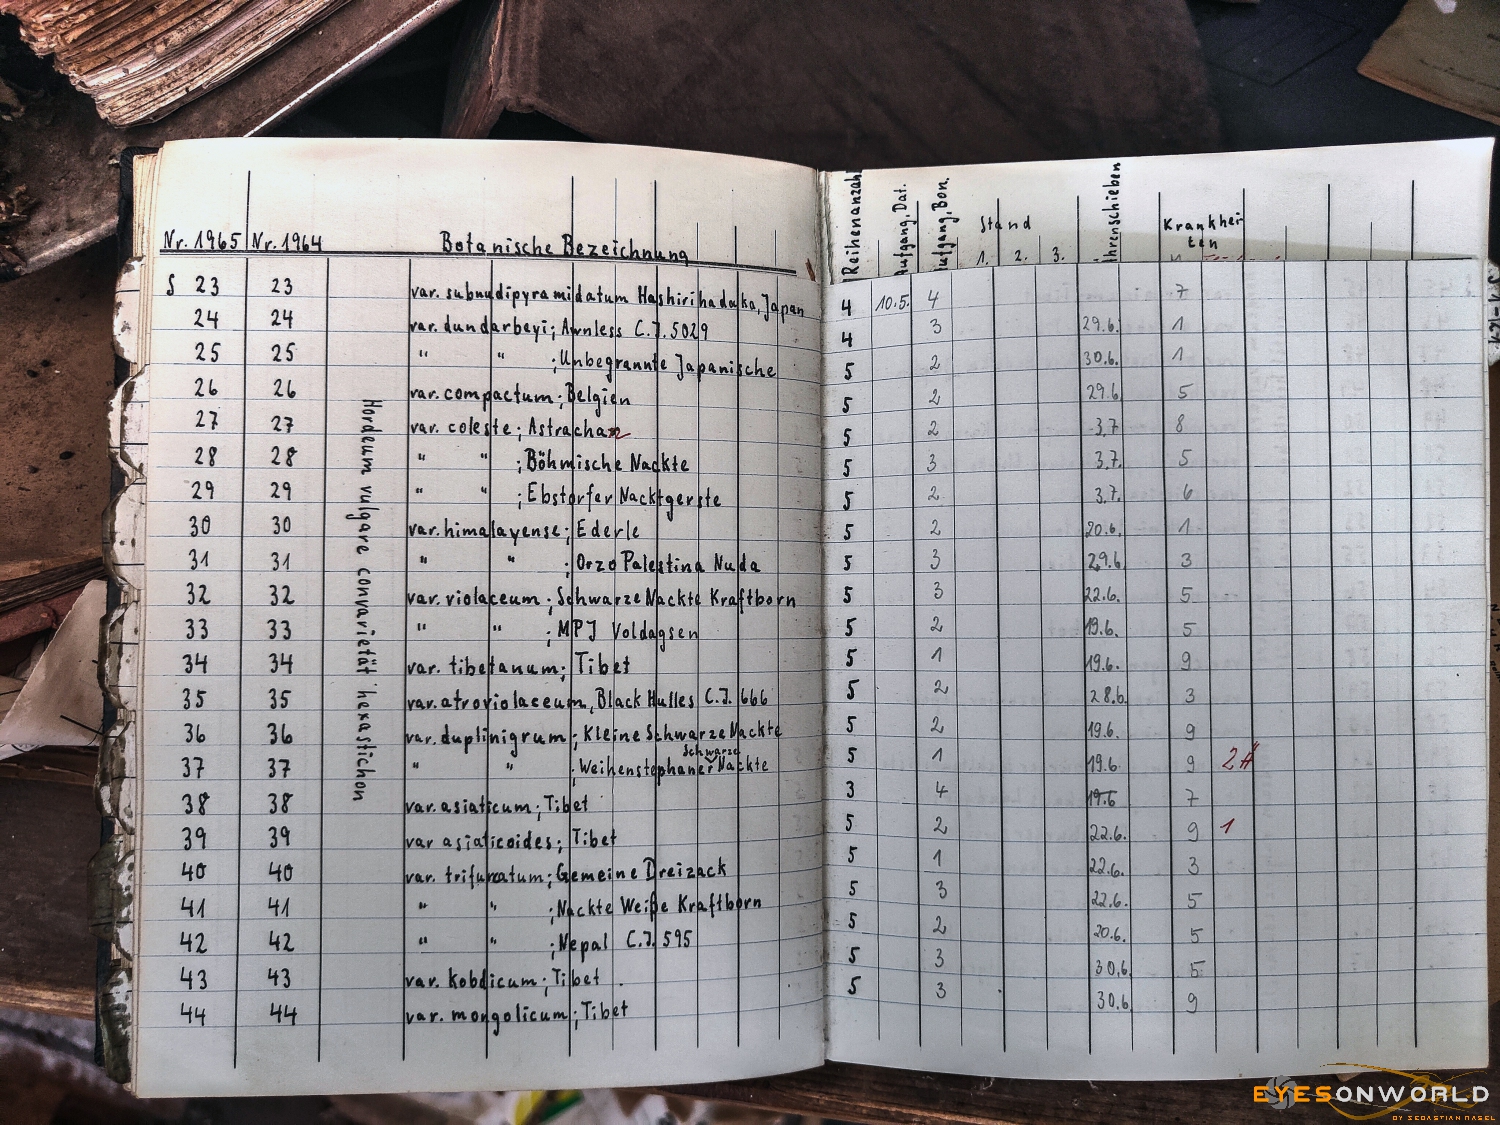 Nr. 1965 Nr. 1964 Botanische Bezeichnung Reihenanzahl Aufgang, Dat. Aufgang, Bon. Stand 1. 2. 3. Ährenschieben Krankhei-
ten
S 23 23 var. subnudipyramidatum Hashirihadaka, Japan 4 10.5. 4 7
24 24 var. dundarbeyi; Awnless C.J. 5029 4 3 29.6. 1
25 25 " " ; Unbegrannte Japanische 5 2 30.6. 1
26 26 var. compactum; Belgien 5 2 29.6 5
27 27 var. coleste; Astrachan 5 2 3.7 8
28 28 " " ; Böhmische Nackte 5 3 3.7. 5
29 29 " " ; Ebstorfer Nacktgerste 5 2 3.7. 6
30 30 var. himalayense; Ederle 5 2 20.6. 1
31 31 " " ; Orzo Palestina Nuda 5 3 29.6 3
32 32 var. violaceum; Schwarze Nackte Kraftborn 5 3 22.6. 5
33 33 " " ; MPJ Voldagsen 5 2 19.6. 5
34 34 var. tibetanum; Tibet 5 1 19.6. 9
35 35 var. atroviolaceum, Black Hulles C.J. 666 5 2 28.6. 3
36 36 var. duplinigrum; Kleine Schwarze Nackte 5 2 19.6. 9
schwarze
37 37 " " ; Weihenstephaner Nackte 5 1 19.6 9 2
38 38 var. asiaticum; Tibet 3 4 19.6 7
39 39 var asiaticoides; Tibet 5 2 22.6. 9 1
40 40 var. trifurcatum; Gemeine Dreizack 5 1 22.6. 3
41 41 " " ; Nackte Weiße Kraftborn 5 3 22.6. 5
42 42 " " ; Nepal C.J. 595 5 2 20.6. 5
43 43 var. kobdicum; Tibet . 5 3 30.6. 5
44 44 var. mongolicum; Tibet 5 3 30.6 9
Hordeum vulgare convarietät hexastichon
EYESONWORLD
BY SEBASTIAN NASEL